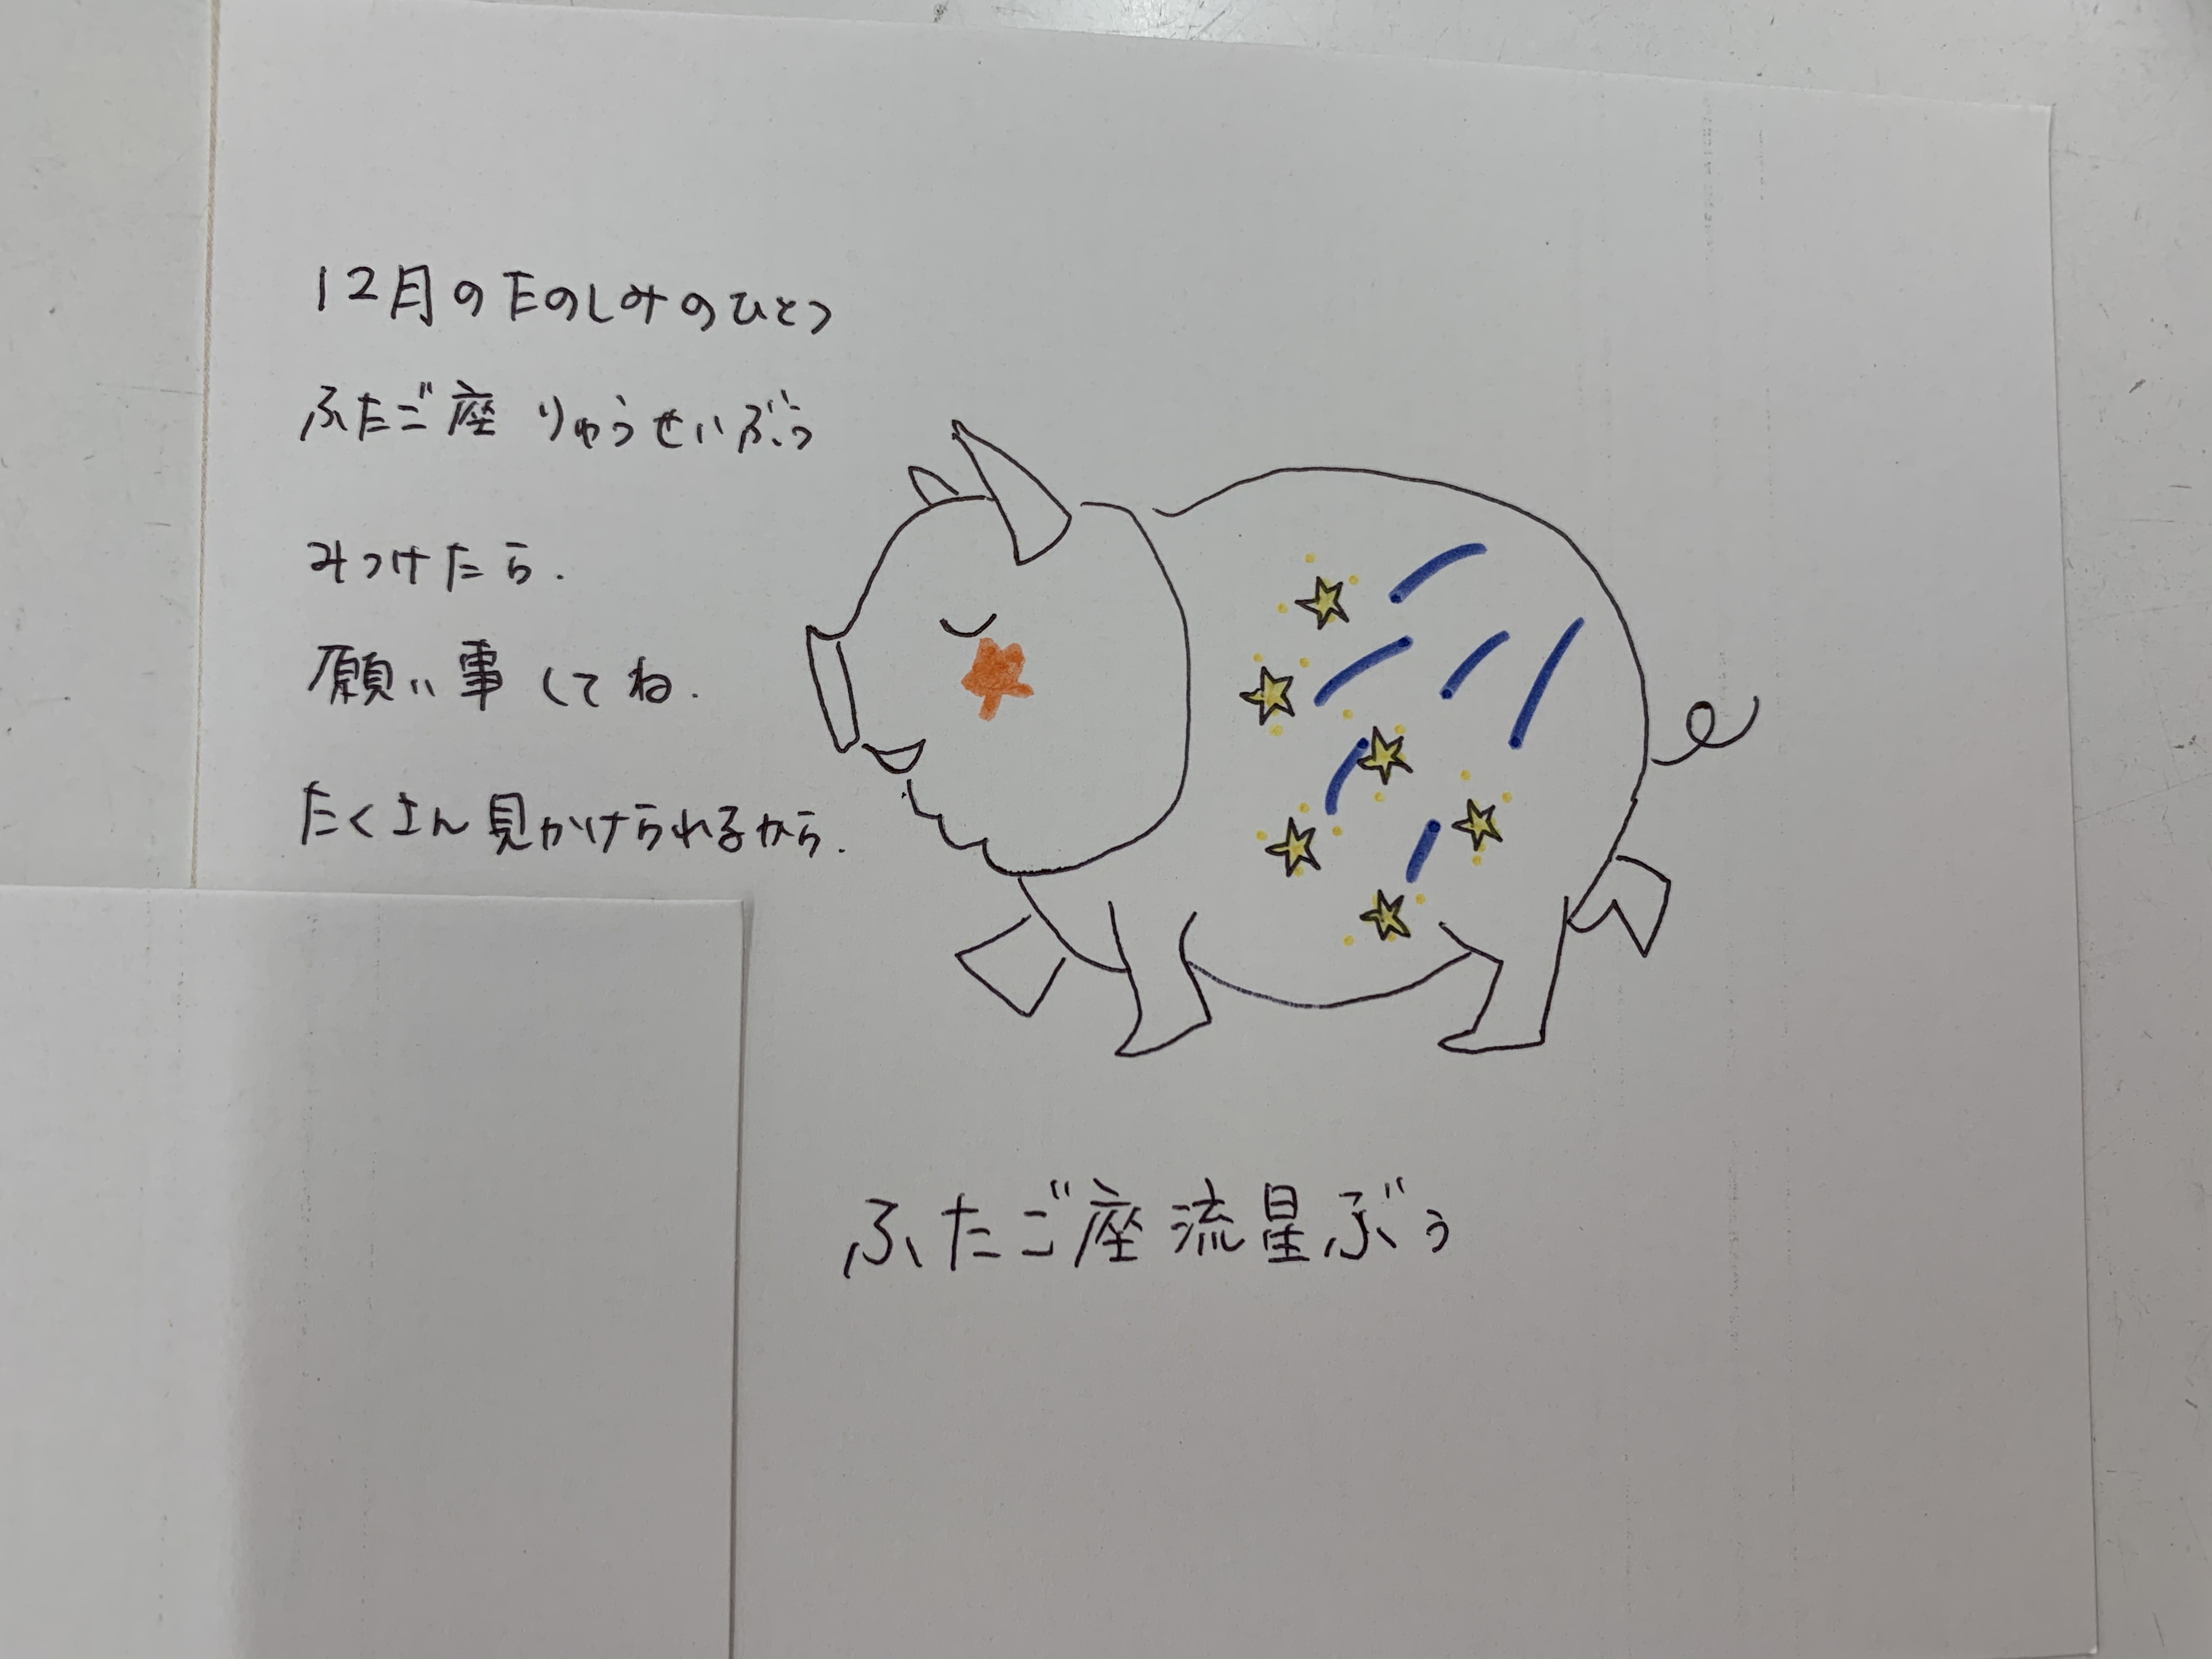 12月のたのしみのひとつ
ふたご座 りゅうせいぶぅ
みつけたら.
願い事してね.
たくさん見かけられるから.
ふたご座流星ぶぅ